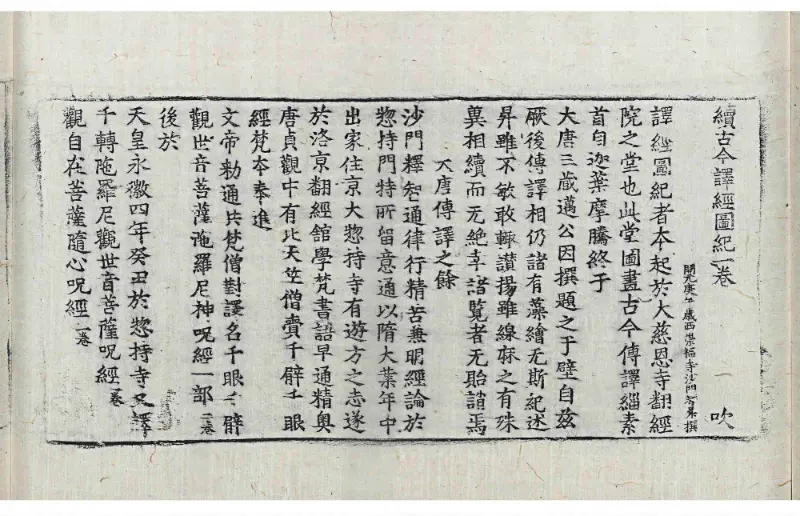 續古今譯經圖紀一卷 一 吹
開元庚午歲西崇福寺沙門智昇撰
譯經圖紀者本起於大慈恩寺翻經
院之堂也此堂圖畫古今傳譯緇素
首自迦葉摩騰終于
大唐三藏邁公因撰題之于壁自茲
厥後傳譯相仍諸有藻繪无斯紀述
昇雖不敏敢輒讚揚雖線麻之有殊
冀相續而无絕幸諸覽者无貽誚焉
大唐傳譯之餘
沙門釋智通律行精苦兼明經論於
惣持門特所留意通以隋大葉年中
出家住京大惣持寺有遊方之志遂
於洛京翻經館學梵書語早通精奧
唐貞觀中有北天竺僧賷千臂千眼
經梵本奉進
文帝勑通共梵僧對譯名千眼千臂
觀世音菩薩陁羅尼神呪經一部二卷
後於
天皇永徽四年癸丑於惣持寺又譯
千轉陁羅尼觀世音菩薩呪經一卷
觀自在菩薩隨心呪經一卷